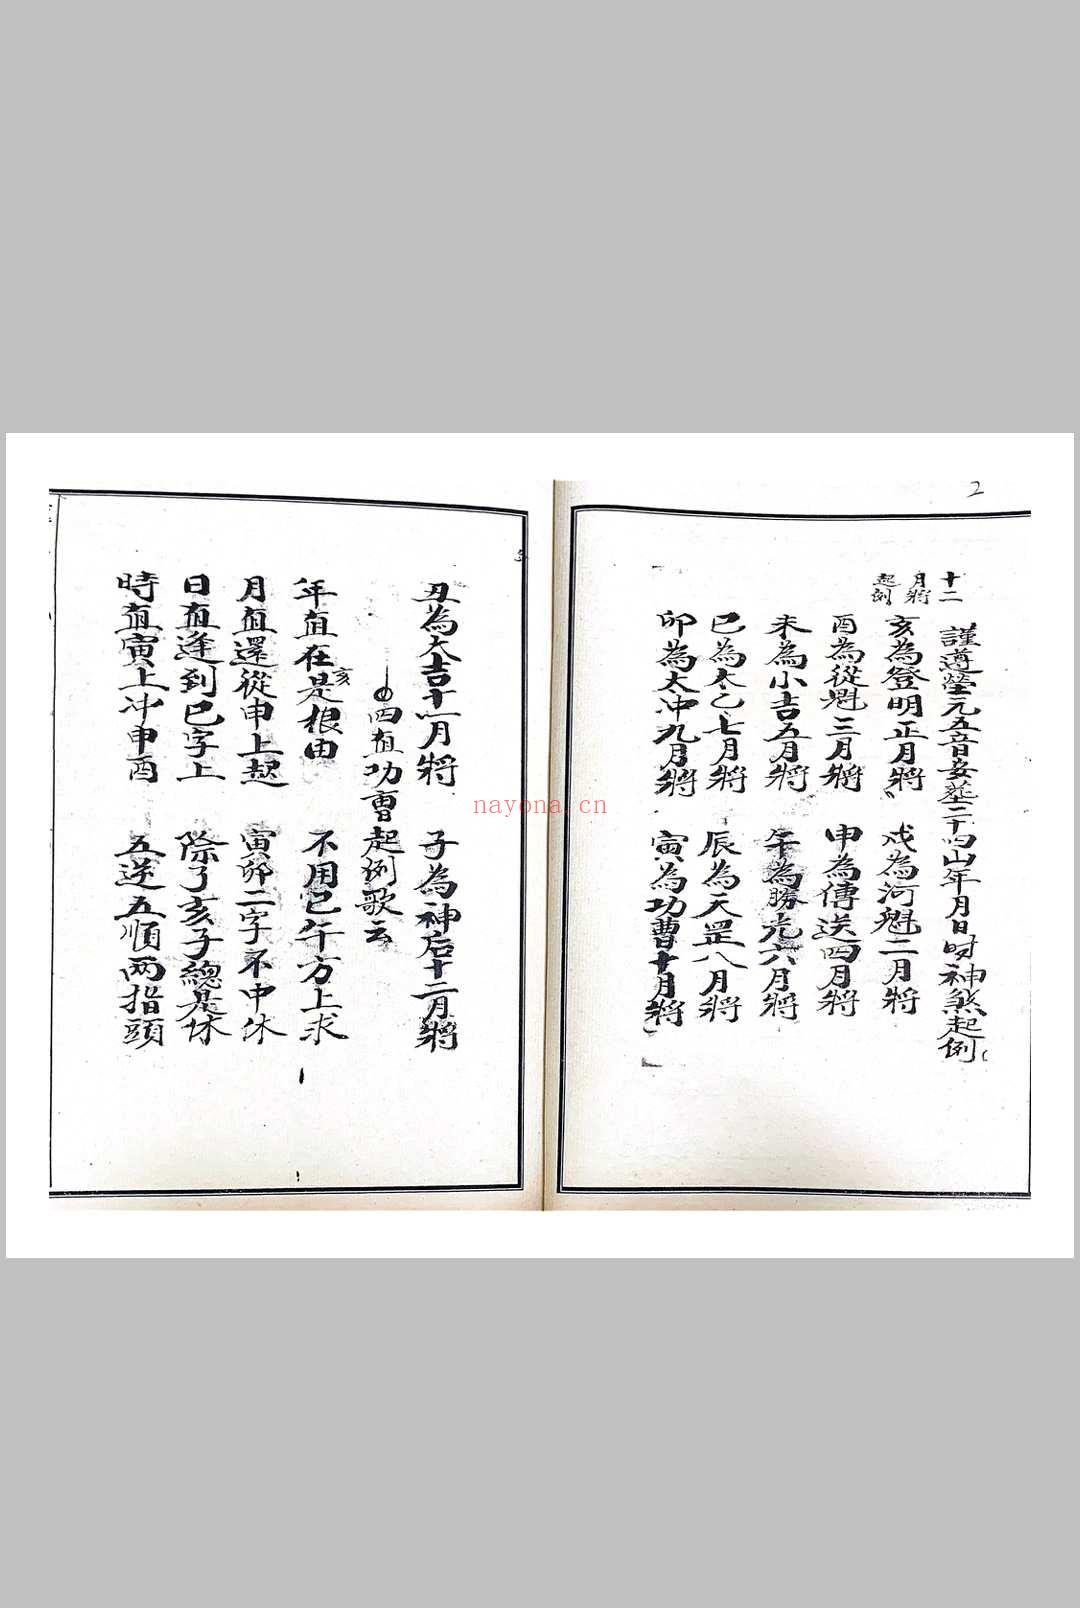 2
十二
月將
起例
謹遵瑩元五音安墓二十四山年月日时神煞起例
亥為登明正月將 戍為河魁二月將
酉為從魁三月將 申為傳送四月將
未為小吉五月將 午為勝光六月將
巳為太乙七月將 辰為天罡八月將
卯為太冲九月將 寅為功曹十月將
丑為大吉十一月將 子為神后十二月將
四直功曹起例歌云
年直在亥是根由 不用巳午方上求
月直還從申上起 寅卯二字不中休
日直逢到巳字上 除了亥子總是休
時直寅上冲申酉 五逆五順两指頭
nayona.cn